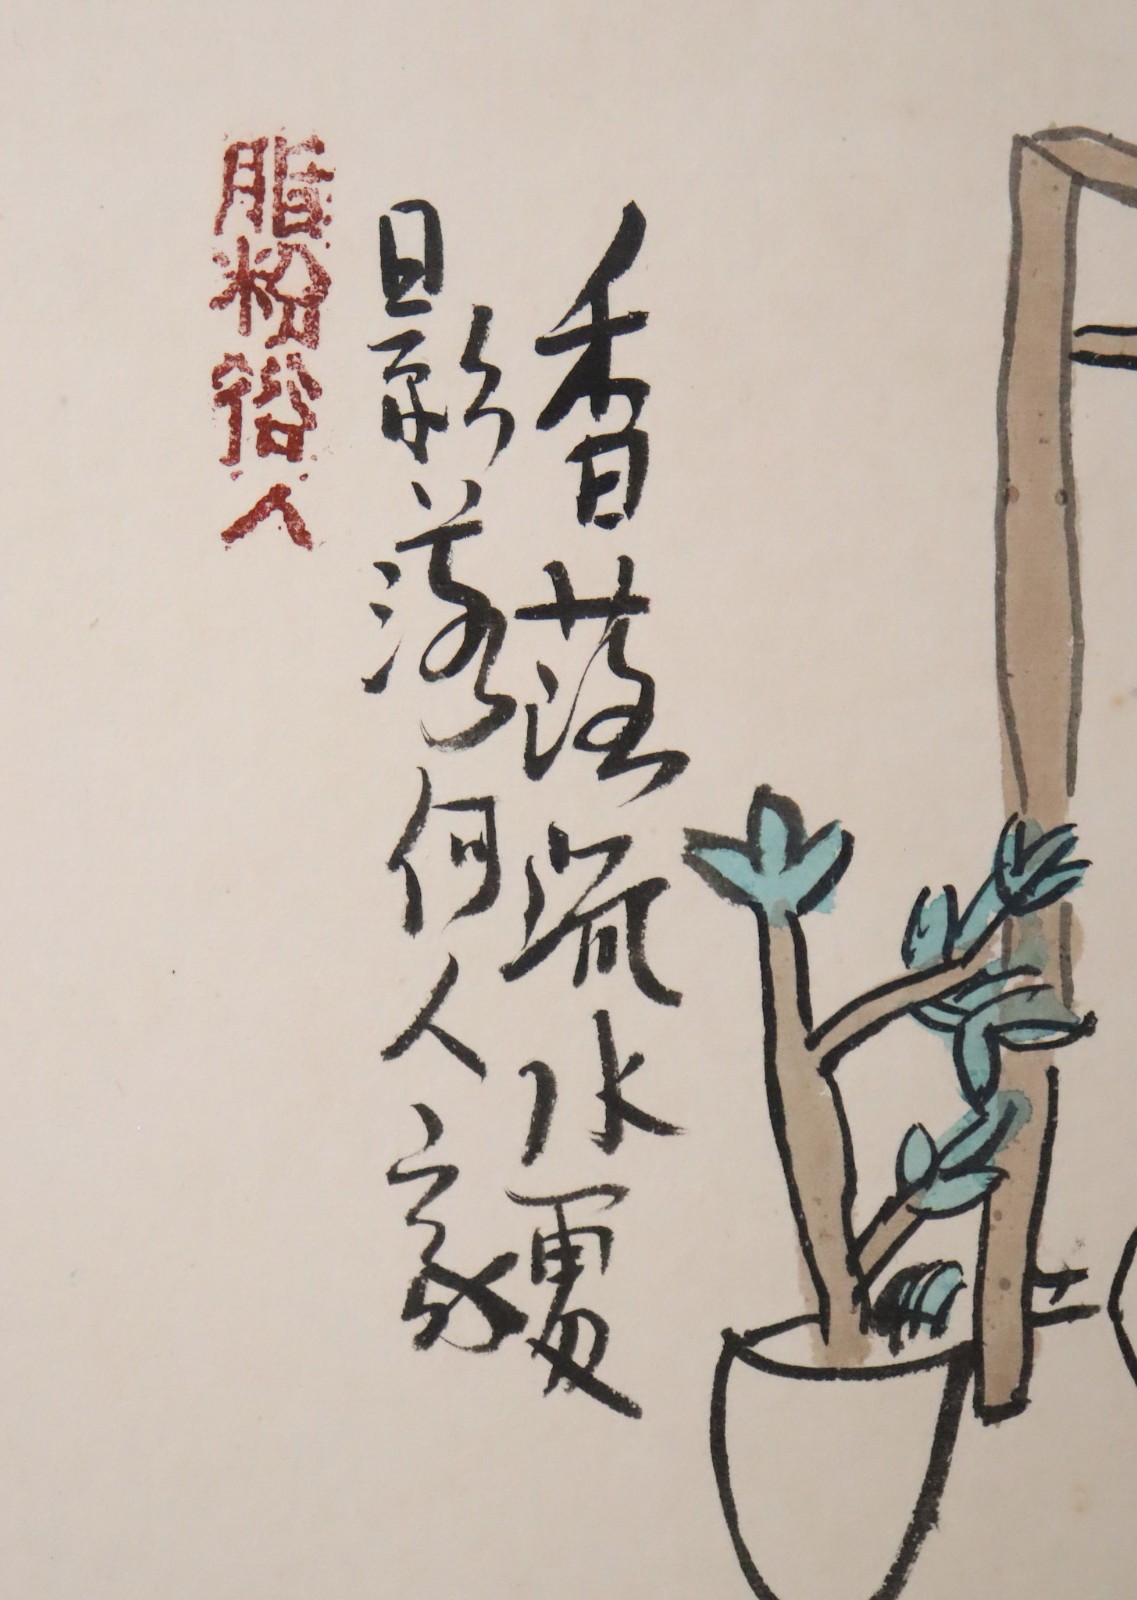 香落流水更
影落何人家
脂粉俗人